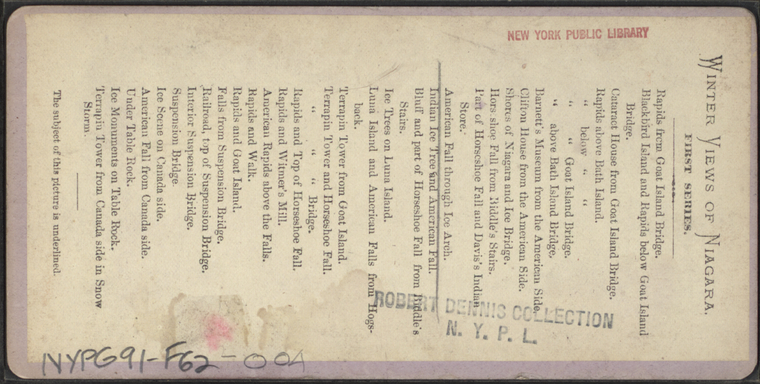 NEW YORK PUBLIC LIBRARY
WINTER VIEWS OF NIAGARA.
FIRST SERIES.
Rapids from Goat Island Bridge.
Blackbird Island and Rapids below Goat Island
Bridge.
Cataract House from Goat Island Bridge.
Rapids above Bath Island.
" below " "
" " Goat Island Bridge.
" above Bath Island Bridge.
Barnett's Museum from the American Side.
Clifton House from the American Side.
Shores of Niagara and Ice Bridge.
Horseshoe Fall from Biddle's Stairs.
Part of Horseshoe Fall and Davis's Indian
Store.
American Fall through Ice Arch.
Indian Ice Tree and American Fall.
Bluff and part of Horseshoe Fall from Biddle's
Stairs.
Ice Trees on Luna Island.
Luna Island and American Falls from Hogs-
back.
Terrapin Tower from Goat Island.
Terrapin Tower and Horseshoe Fall.
" " Bridge.
Rapids and Top of Horseshoe Fall.
Rapids and Witmer's Mill.
American Rapids above the Falls.
Rapids and Walk.
Rapids and Goat Island.
Falls from Suspension Bridge.
Railroad, top of Suspension Bridge.
Interior Suspension Bridge.
Suspension Bridge.
Ice Scene on Canada side.
American Fall from Canada side.
Under Table Rock.
Ice Monuments on Table Rock.
Terrapin Tower from Canada side in Snow
Storm.
The subject of this picture is underlined.
ROBERT DENNIS COLLECTION
N. Y. P. L.
NYPG91-F62-004